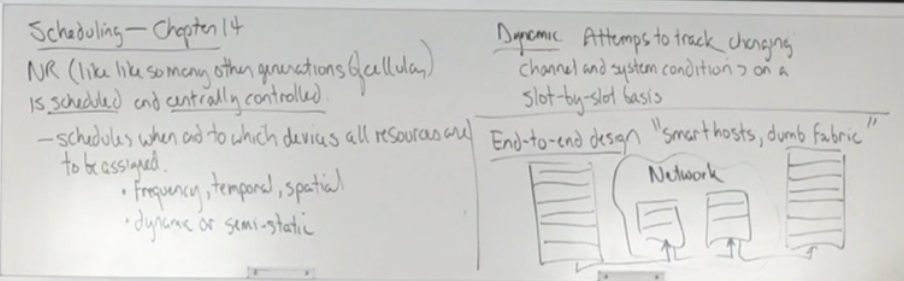 Scheduling — Chapter 14
NR (like like so many other generations of cellular)
is scheduled and centrally controlled.
— schedules when and to which devices all resources are
to be assigned.
• frequency, temporal, spatial
• dynamic or semi-static
Dynamic Attemps to track changing
channel and system conditions on a
slot-by-slot basis
End-to-end design "smart hosts, dumb fabric"
Network